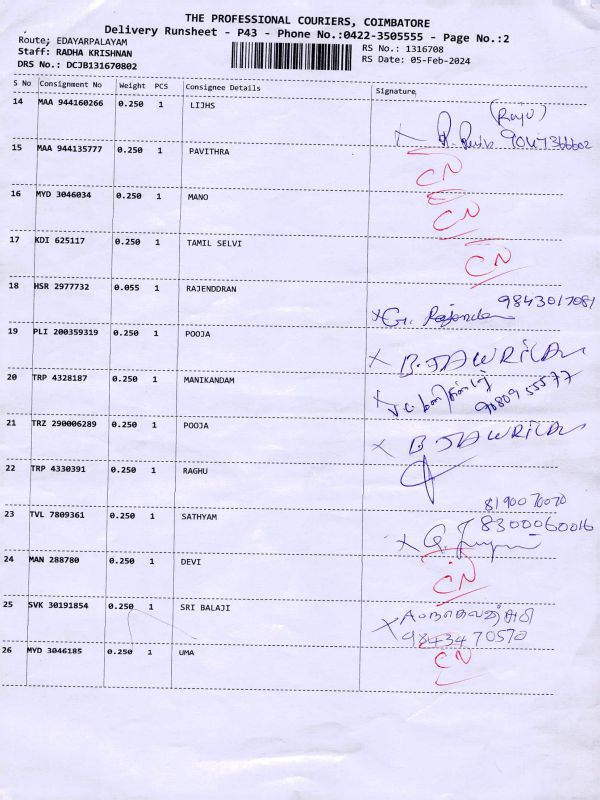 THE PROFESSIONAL COURIERS, COIMBATORE
Delivery Runsheet - P43 - Phone No.:0422-3505555 - Page No.:2
Route; EDAYARPALAYAM
Staff: RADHA KRISHNAN
DRS No.: DCJB131670802
RS No.: 1316708
RS Date: 05-Feb-2024
S No Consignment No Weight PCS Consignee Details Signature
(Raju)
14 MAA 944160266 0.250 1 LIJHS
15 MAA 944135777 0.250 1 PAVITHRA CN
16 MYD 3046034 0.250 1 MANO CN
17 KDI 625117 0.250 1 TAMIL SELVI CN
18 HSR 2977732 0.055 1 RAJENDDRAN 9843017081
19 PLI 200359319 0.250 1 POOJA
20 TRP 4328187 0.250 1 MANIKANDAM 98809 55577
21 TRZ 290006289 0.250 1 POOJA
22 TRP 4330391 0.250 1 RAGHU
8190070070
23 TVL 7809361 0.250 1 SATHYAM 8300060016
24 MAN 288780 0.250 1 DEVI CN
25 SVK 30191854 0.250 1 SRI BALAJI
9843470570
26 MYD 3046185 0.250 1 UMA CN